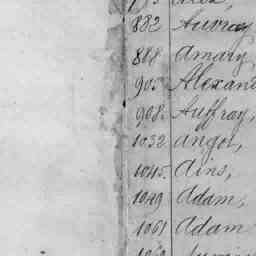 882 Auvray
888 Amary
905 Alexand
908. Auffray,
1032 Angot,
1045. Ains,
1049 Adam,
1061 Adam